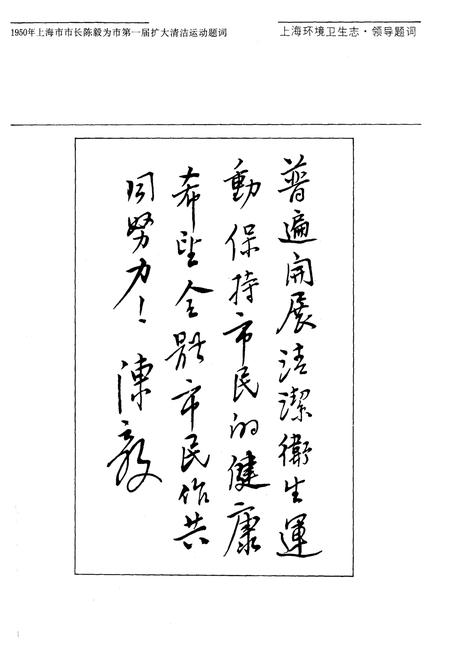 1950年上海市市长陈毅为市第一届扩大清洁运动题词
上海环境卫生志·领导题词
普遍開展清潔衛生運
動保持市民的健康
希望全體市民作共
同努力！
陳毅